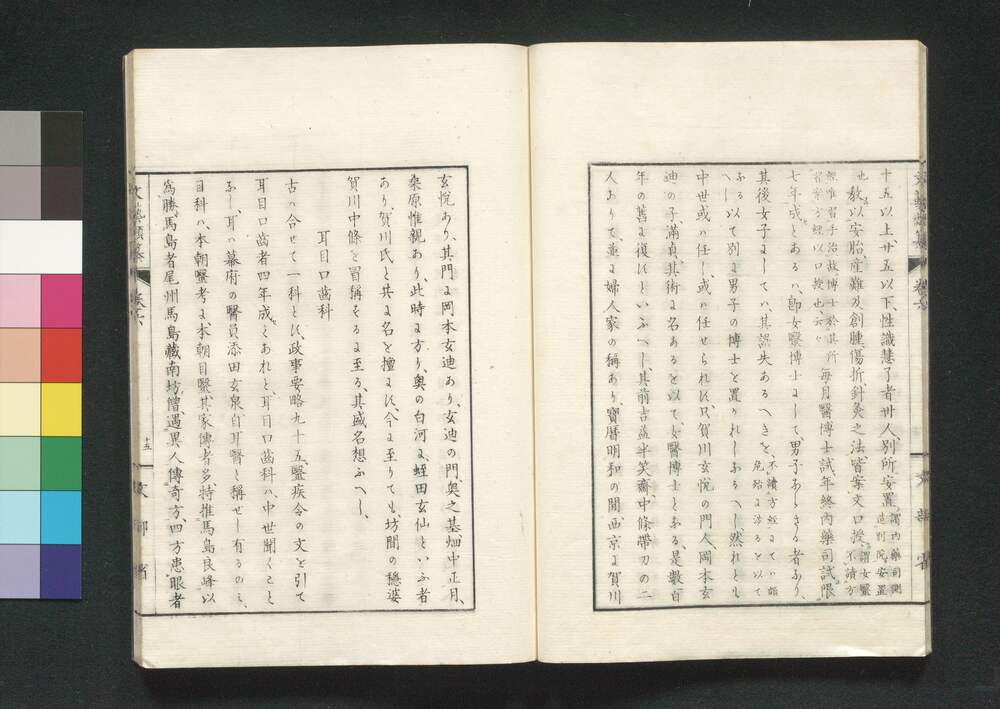 十五以上廿五以下、性識慧了者卅人、別所安置、謂内藥司側造別院安置
也、教以安胎産難及創腫傷折、針灸之法、皆案文口授、謂女醫不讀方
經唯習手治故博士於其所習案方經以口授也、云々毎月醫博士試、年終内藥司試、限
七年成とあるハ、即女醫博士ょして、男子あらさる者あり、
其後女子ょしてハ、其誤失あるへきを、不讀方經
ふるへし、以て別ょ男子の博士を置かれしふるへし、然れとも
中世或ハ任し、或ハ任せられに、只賀川玄悦の門人、岡本玄
迪の子、滿貞、其術ょ名あるを以て、女醫博士とふる、是數百
年の舊ょ復にといふへし、其前吉益半笑齋、中條帶刀の二
人ありて、並ょ婦人家の稱あり、寶暦明和の間、西京ょ賀川
玄悦あり、其門ょ岡本玄迪あり、玄迪の門、奥之基、畑中正月、
桑原惟親あり、此時ょ方り、奥の白河ょ、蛭田玄仙といふ者
あり、賀川氏と共ょ名を擅ょに、今ょ至りても、坊間の穩婆
賀川中條を冒稱するょ至る、其盛名想ふへし、
耳目口齒科
古ハ合せて一科とに、政事要略九十五、醫疾令の文を引て
耳目口齒者四年成とあれと、耳目口齒科ハ、中世聞くこと
ふし、耳ハ幕府の醫員添田玄泉自耳醫と稱せし有るのミ、
目科ハ、本朝醫考ょ、本朝目醫、其家傳者多、特推馬島良峰以
爲勝、馬島者尾州馬島藏南坊僧、遇異人傳奇方、四方患眼者
文藝類纂 卷六 十五 文部省